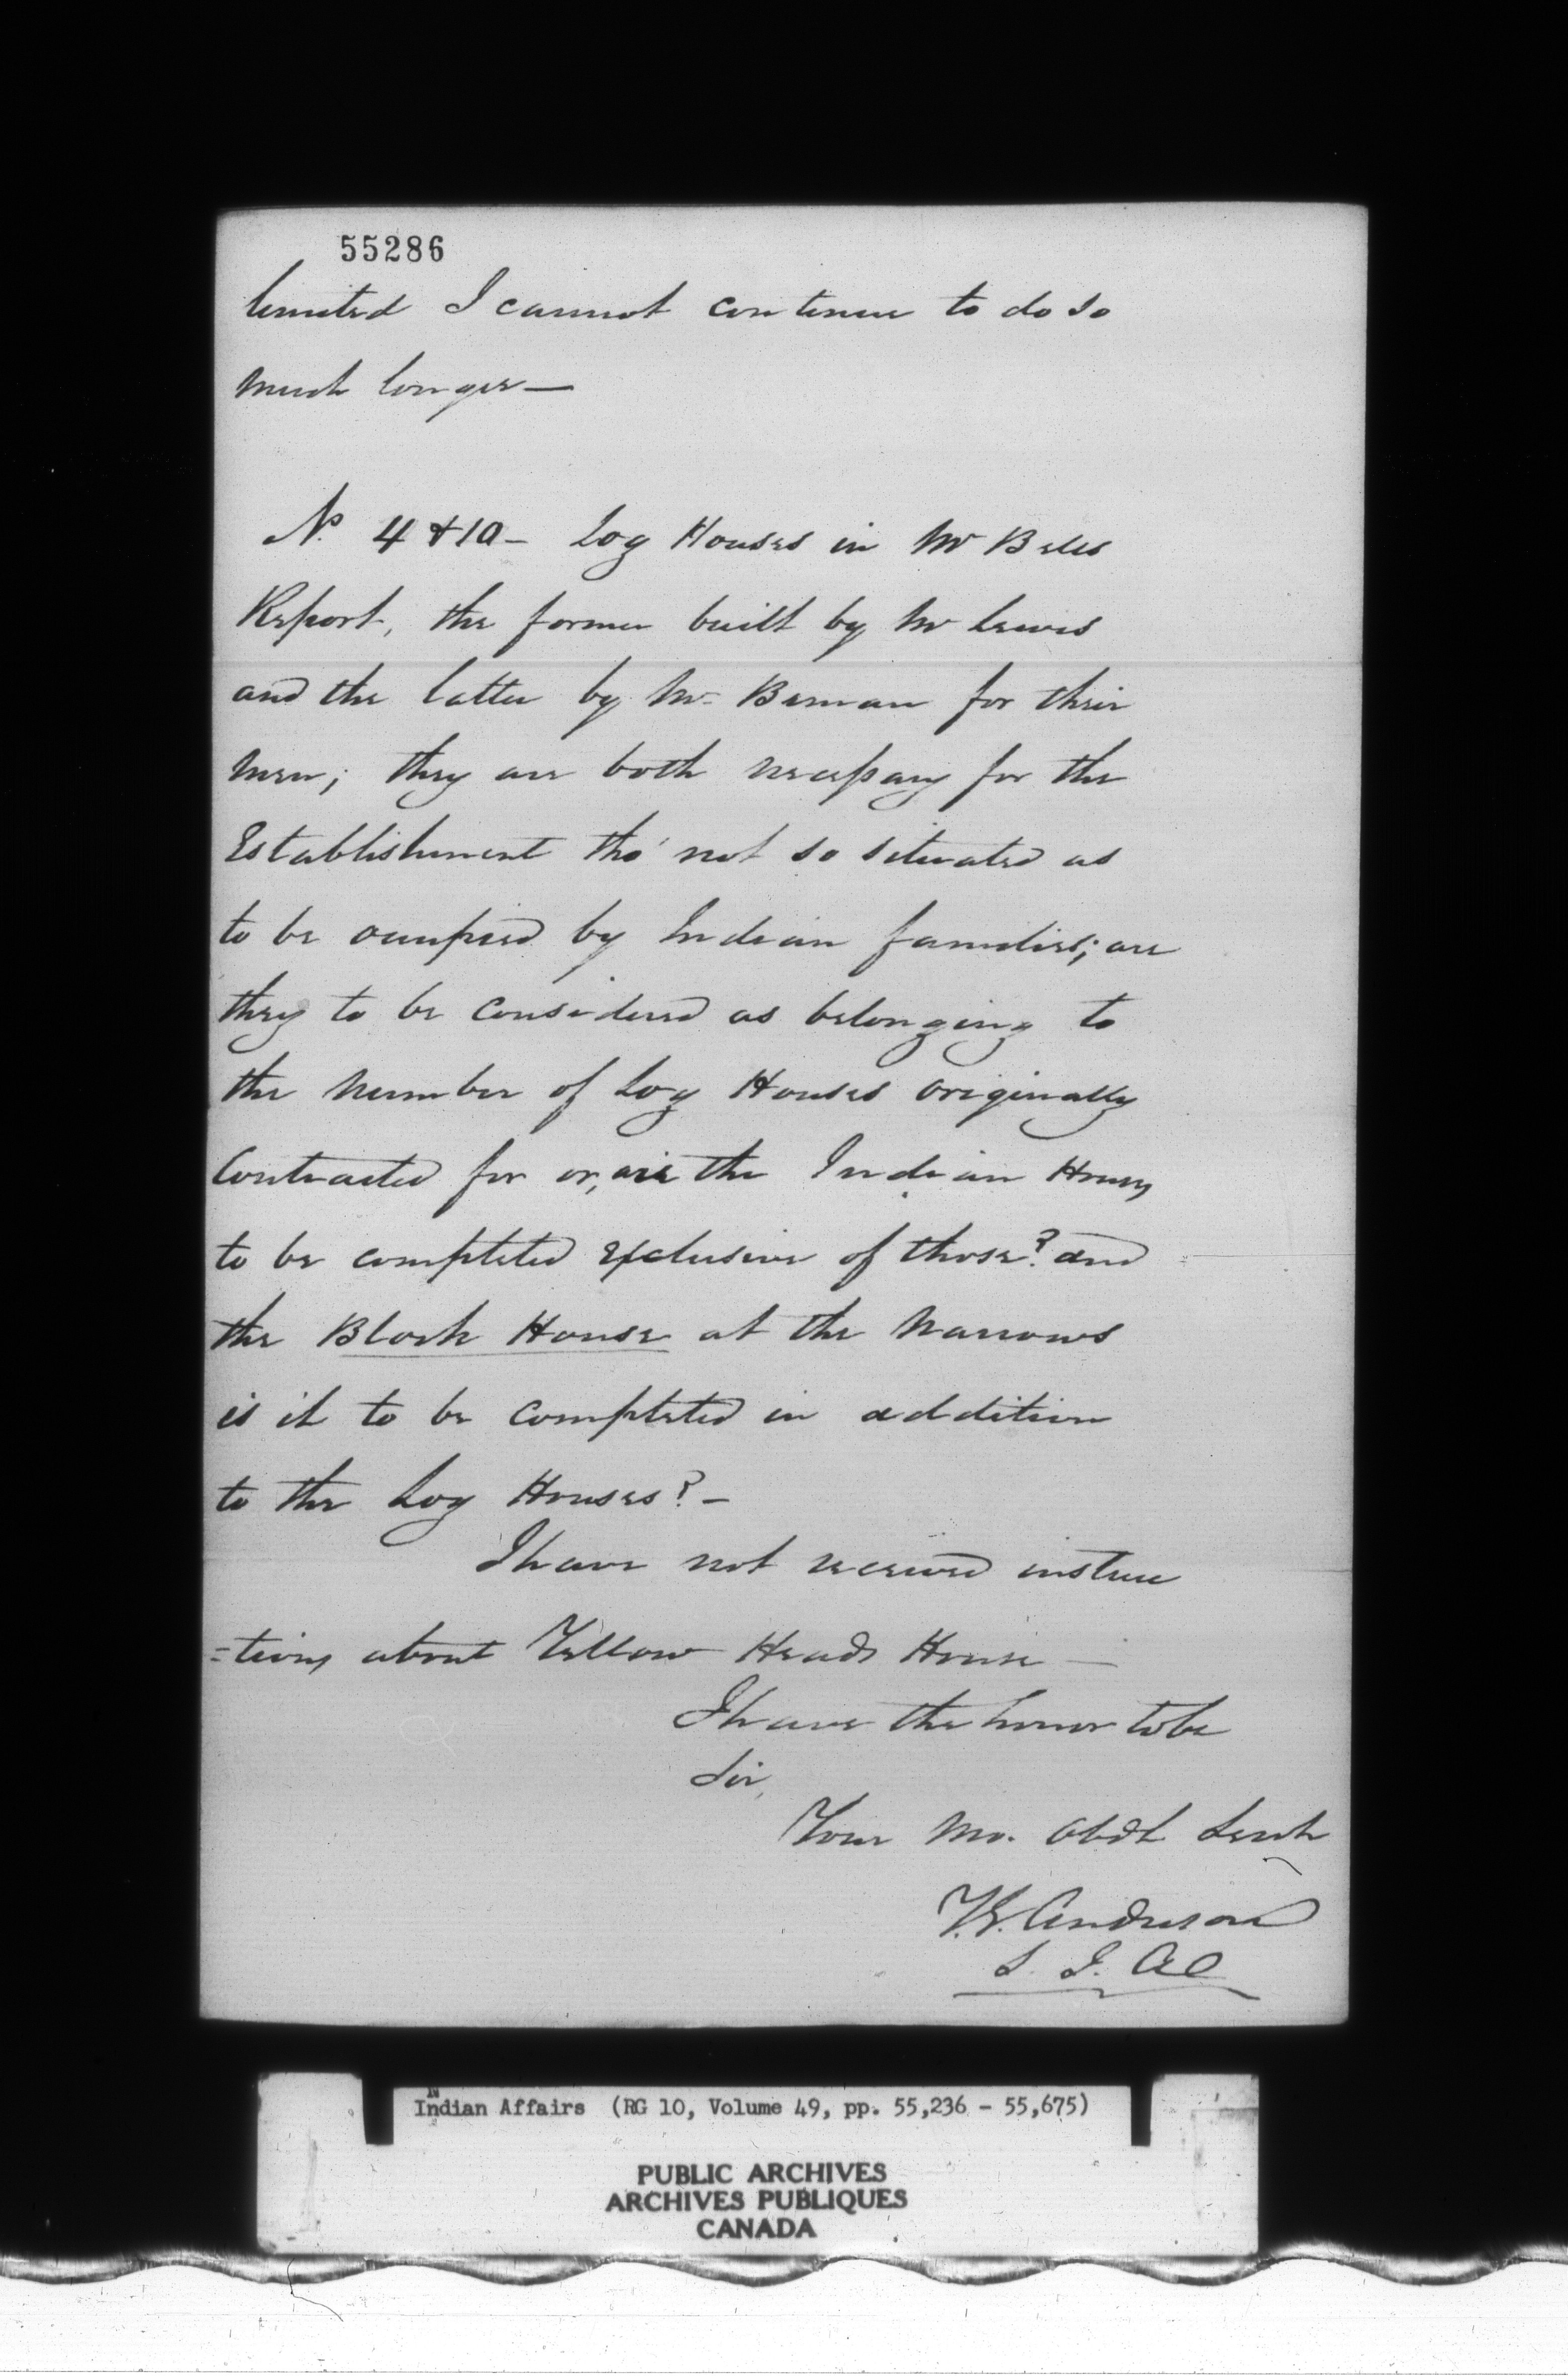 55286
limited I cannot continue to do so
much longer —
No. 4 & 10 - Log Houses in Mr Bells
Report, the former built by Mr Lewis
and the latter by Mr. Beman for their
men; they are both necessary for the
Establishment tho' not so situated as
to be occupied by Indian families; are
they to be considered as belonging to
the number of Log Houses originally
Contracted for or, are the Indian Houses
to be completed exclusive of those? and
the Block House at the Narrows
is it to be completed in addition
to the Log Houses? -
I have not received instruc
=tions about Yellow Heads House —
I have the honor to be
Sir,
Your Mo. Obdt Servt
T.G. Anderson
S. I. A
Indian Affairs (RG 10, Volume 49, pp. 55,236 - 55,675)
PUBLIC ARCHIVES
ARCHIVES PUBLIQUES
CANADA